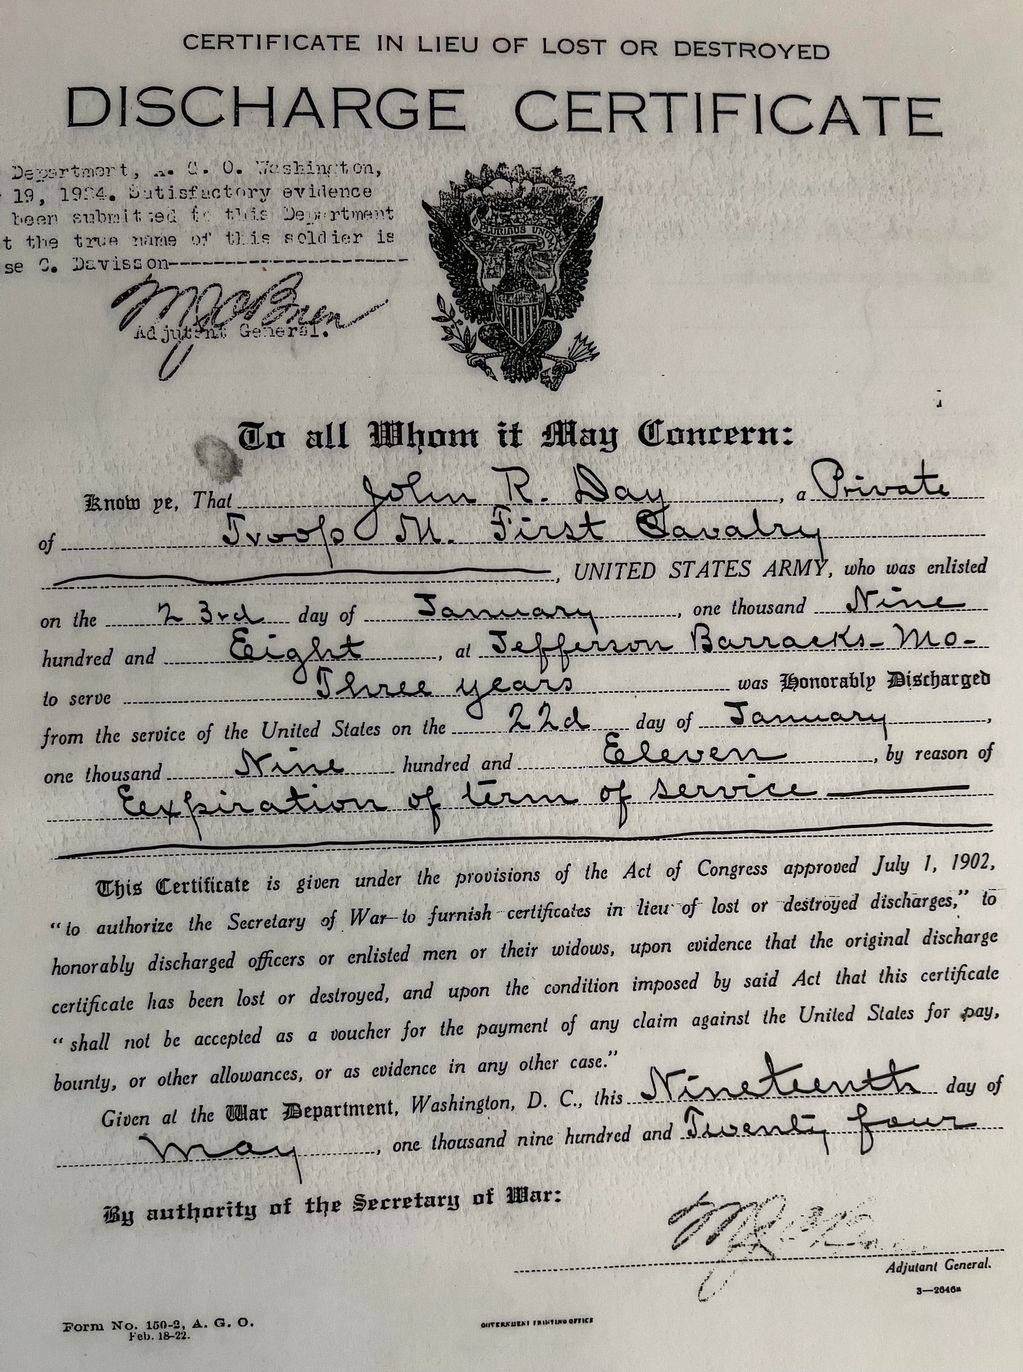 CERTIFICATE IN LIEU OF LOST OR DESTROYED
DISCHARGE CERTIFICATE
Department, A. G. O. Washington,
19, 1924. Satisfactory evidence
been submitted to this Department
t the true name of this soldier is
se C. Davisson
Adjutant General.
PLURIBUS UNUM
To all Whom it May Concern:
Know ye, That John R. Day, a Private
of Troop M. First Cavalry
, UNITED STATES ARMY, who was enlisted
on the 23rd day of January, one thousand Nine
hundred and Eight, at Jefferson Barracks-Mo-
to serve Three years was Honorably Discharged
from the service of the United States on the 22d day of January,
one thousand Nine hundred and Eleven, by reason of
Eexpiration of term of service
This Certificate is given under the provisions of the Act of Congress approved July 1, 1902,
"to authorize the Secretary of War to furnish certificates in lieu of lost or destroyed discharges," to
honorably discharged officers or enlisted men or their widows, upon evidence that the original discharge
certificate has been lost or destroyed, and upon the condition imposed by said Act that this certificate
"shall not be accepted as a voucher for the payment of any claim against the United States for pay,
bounty, or other allowances, or as evidence in any other case."
Given at the War Department, Washington, D. C., this Nineteenth day of
May, one thousand nine hundred and Twenty four
By authority of the Secretary of War:
Adjutant General.
3—2646a
Form No. 150-2, A. G. O.
Feb. 18-22.
GOVERNMENT PRINTING OFFICE